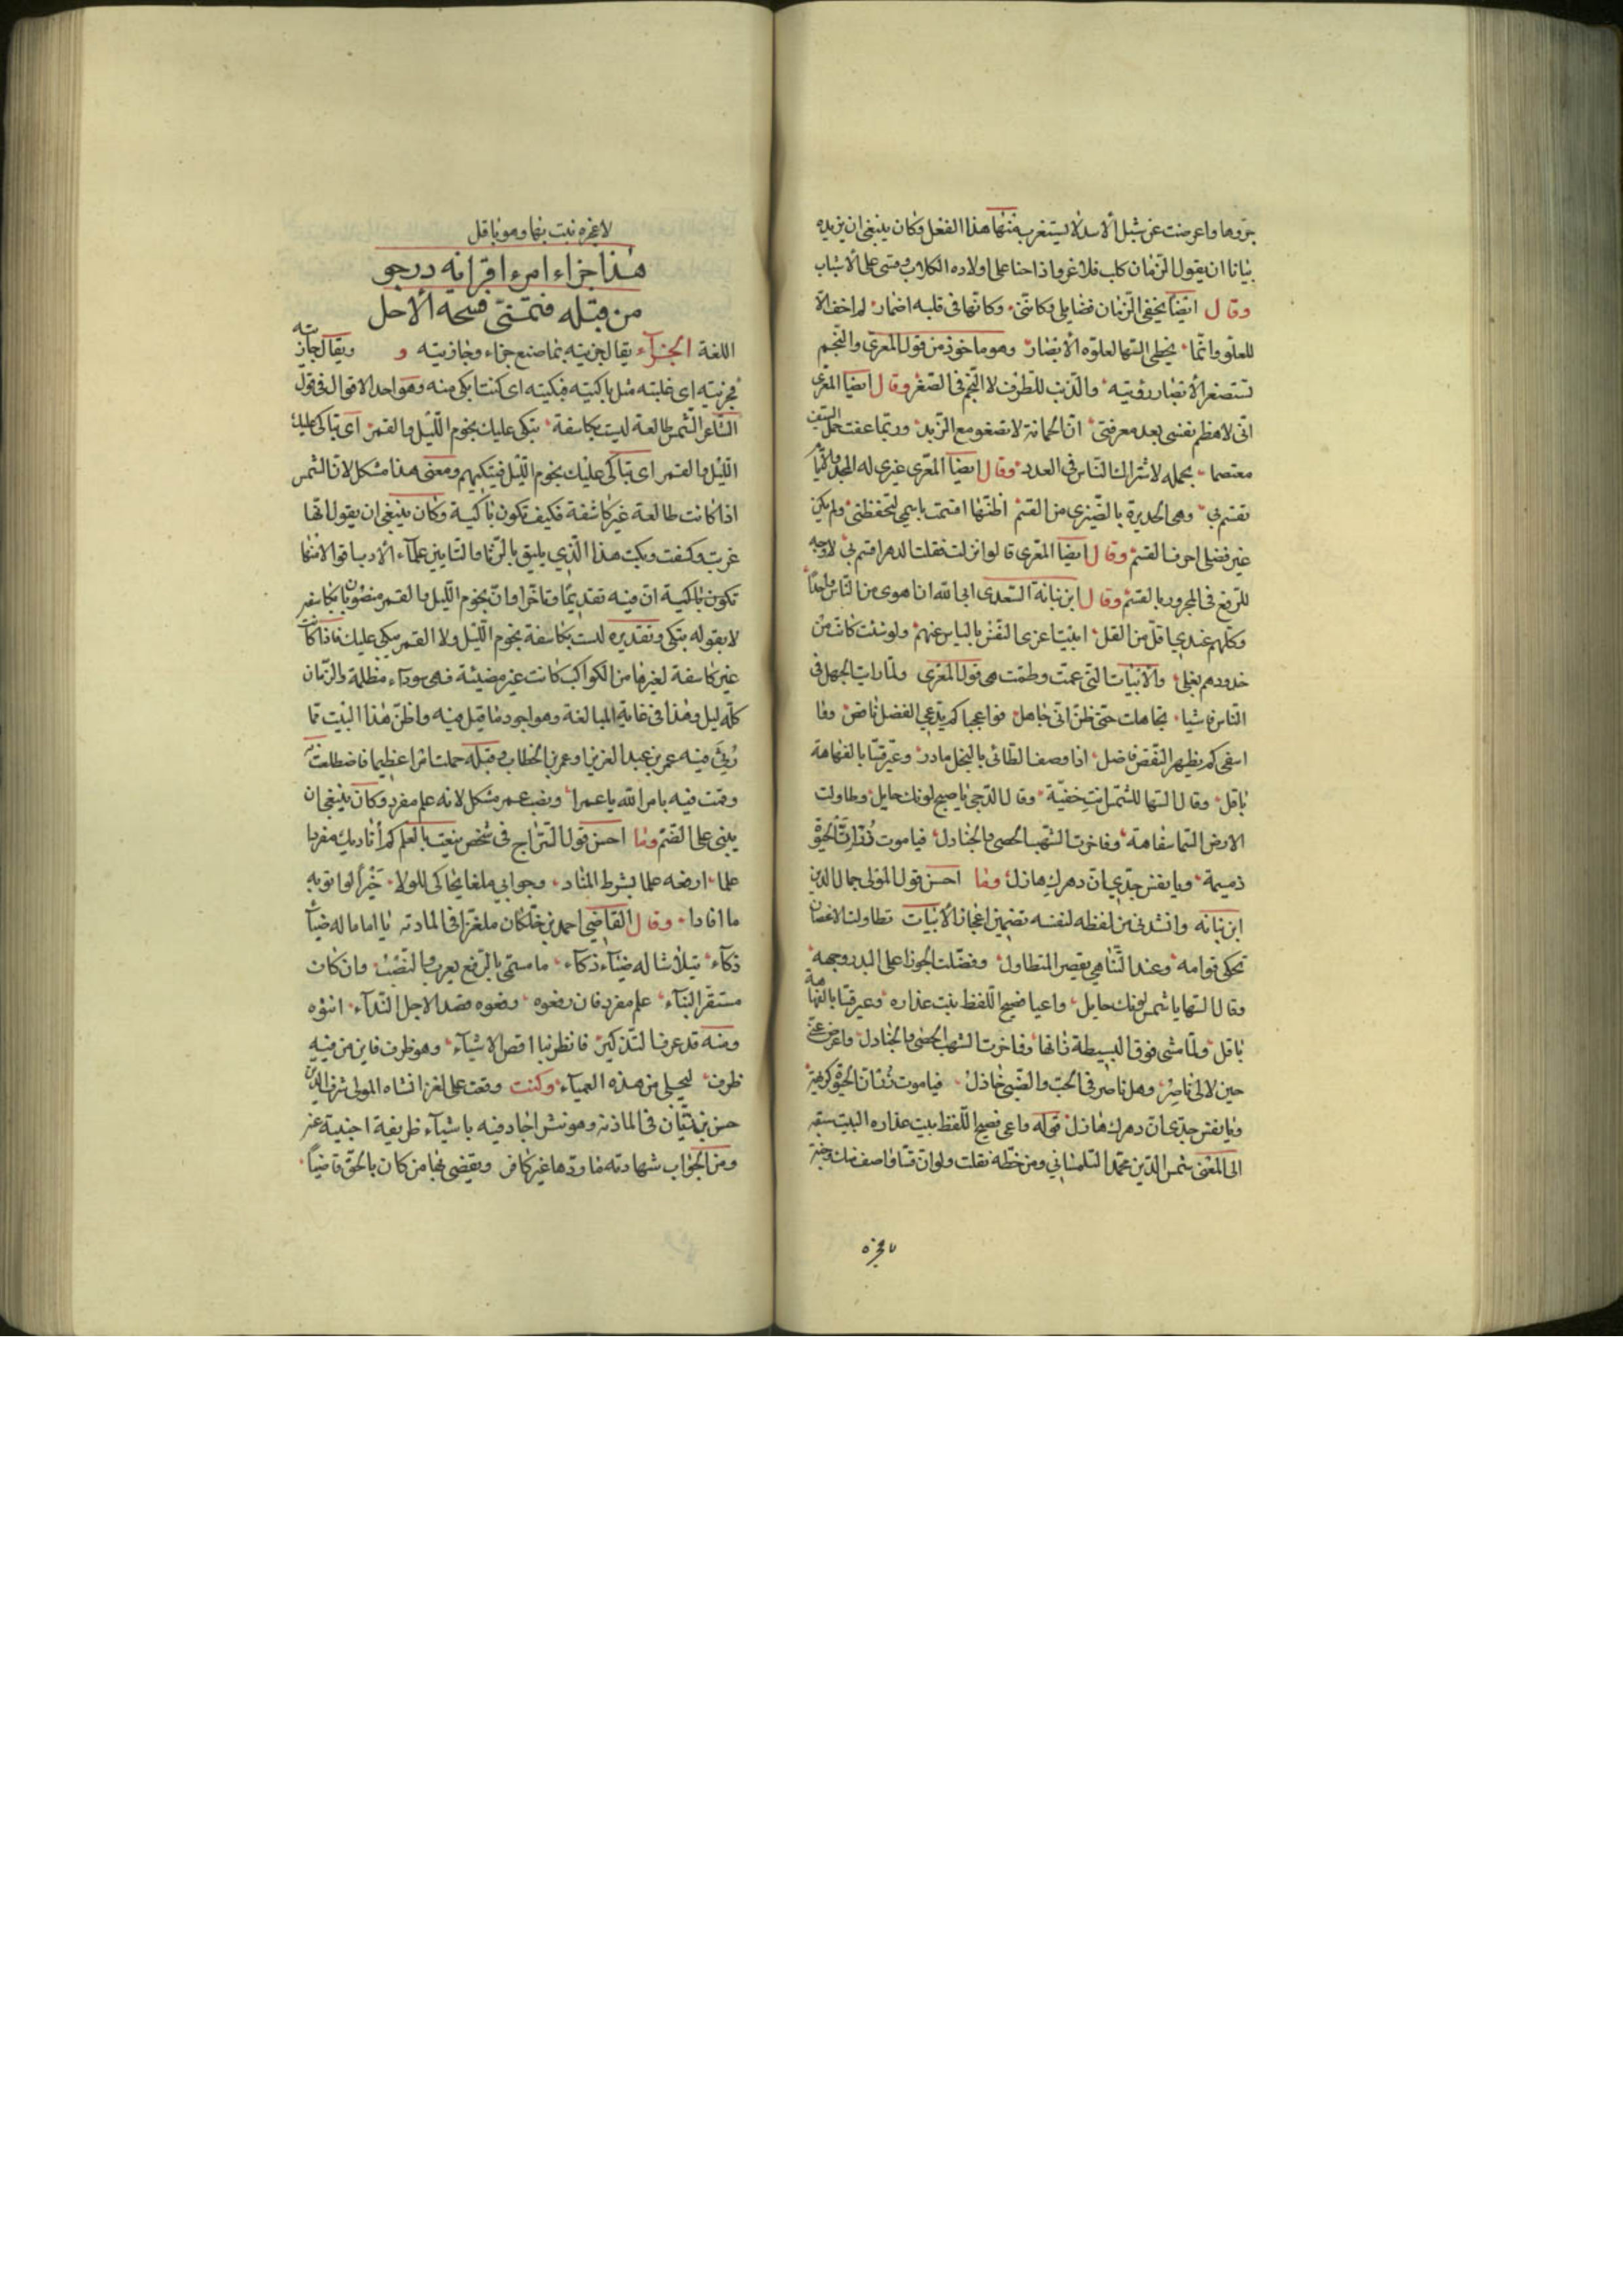 بجروها واعرضت عن شبل الأسد لا يستغرب منها هذا الفعل وكان ينبغي ان يزيده
بيانا ان يقول الزمان كلب فلا غرو اذا حنا على اولاده الكلاب ومتى على الأشباب
وقال ايضا يخفي الزمان فضايلي وكانني وكانها في قلبه اضمار لم اخف الا
للعلو وانما يخطى السها لعلوه الأبصار وهو ماخوذ من قول المعري والنجم
تستصغر الأبصار رؤيته والذنب للطرف لا النجم في الصغر وقال ايضا المعري
اني لاعظم نفسي بعد معرفتي ان الجمانة لا تصغو مع الزبد وربما عفت حمل السيف
معتصما بحمله لاشتراك الناس في العدد وقال ايضا المعري غيري له المجد
تقسم بي وهي الجديرة بالضيزى من القسم اظنها اقسمت باسمي لتحفظني ولم يكن
غير فضلي احرف القسم وقال ايضا المعري قالوا نزلت فقلت الدهر اقسم بي لا وجه
للرفع في المجرور بالقسم وقال ابن نباتة السعدي ابى الله ان اهوى من الناس واحدا
وكلهم عندي اقل من القل ابيت اعزى النفس بالياس عنهم ولو شئت كانت من
خدودهم نعلي والأبيات التي عمت وطمت هي قول المعري ولما رايت الجهل في
الناس فاشيا تجاهلت حتى ظن اني جاهل فواعجبا كم يدعي الفضل ناقص ووا
اسفي كم يظهر النقص فاضل اذا وصف الطائي بالبخل مادر وعير قسا بالفهاهة
باقل وقال السها للشمس انت خفية وقال الدجى يا صبح لونك حايل وطاولت
الارض السما سفاهة وفاخرت الشهب الحصى والجنادل فيا موت زر ان الحيوة
ذميمة ويا نفس جدي ان دهرك هازل وما احسن قول المولى جمال الدين
ابن نباته وانشدني من لفظه لنفسه تضمين اعجاز الأبيات تطاولت الاغصان
تحكي قوامه وعند التناهي يقصر المتطاول وفضلت الجوزا على البدر وجهه
وقال السها يا شمس لونك حايل واعيا فصيح اللفظ نبت عذاره وعير قسا بالفهاهة
باقل ولما مشى فوق البسيطة تائها وفاخرت الشهب الحصى والجنادل واعرض عني
حين لا لي ناصر وهل ناصر في الحب والصبي خاذل فيا موت زر ان الحيوة كريهة
ويا نفس جدي ان دهرك هازل قوله واعي فصيح اللفظ بيت عذاره البيت سبقه
الى المعنى شمس الدين محمد التلمساني ومن خطه نقلت ولو ان قسا واصف منك وجنة
لاعجزه نبت بها وهو باقل
هذا جزاء امرء اقرانه درجو
من قبله فتمنى فسحة الأجل
اللغة الجزآء يقال جزيته بما صنع جزاء وجازيته و ويقال جازيته
فجزيته اي غلبته مثل باكيته فبكيته اي كنت ابكى منه وهو احد الاقوال في قول
الشاعر الشمس طالعة ليست بكاسفة تبكي عليك نجوم الليل والقمر اي تباكى عليك
الليل والقمر اي تباكى عليك نجوم الليل فتبكيهم ومعنى هذا مشكل لان الشمس
اذا كانت طالعة غير كاسفة فكيف تكون باكية وكان ينبغي ان يقول انها
غربت وكسفت وبكت هذا الذي يليق بالرثا والتابين علمآء الأدب قالوا انما
تكون باكية ان فيه تقديما وتاخرا وان نجوم الليل والقمر منصوبان بكاسفة
لا بقوله تبكي وتقديره ليست بكاسفة نجوم الليل ولا القمر تبكي عليك فاذا كانت
غير كاسفة لغيرها من الكواكب كانت غير مضيئة فهي سودآء مظلمة والزمان
كله ليل وهذا في غاية المبالغة وهو اجود ما قيل فيه واظن هذا البيت مما
رثي فيه عمر بن عبد العزيز او عمر بن الخطاب وقبله حملت امرا عظيما فاضطلعت به
وقمت فيه بامر الله يا عمرا ونصب عمر مشكل لانه علم مفرد وكان ينبغي ان
يبنى على الضم وما احسن قول السراج في شخص ينعت بالعلم كم أناديك مفردا
علما ارفعه علما بشرط المناد وجوابي ملغا يحاكي للولا خبرا لو اتو به
ما افادا وقال القاضي احمد بن خلكان ملغزا في الماذنه يا اماما له ضيآء
ذكآء يتلاشا له ضيآء ذكآء ما مسمى بالرفع يعرب والنصب وان كان
مستقر البنآء علم مفرد فان رفعوه رفعوه قصدا لاجل الندآء انثوه
ومنه قد عرف التذكير فانظر تناقض الاشيآء وهو ظرف فاين من فيه
ظرف ليجلي من هذه العميآء وكنت وقفت على لغز انشاه المولى شرف الدين
حسن بن ريان في الماذنه وهو نثر اجاد فيه باشيآء ظريفة اجنبية عنه
ومن الجواب شهادته ما ردها غير كافر ويقضى بها من كان بالحق قاضيا
لاعجزه